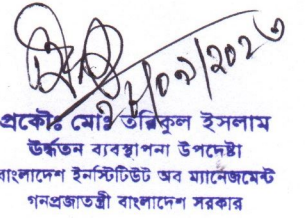 প্রকৌঃ মোঃ তরিকুল ইসলাম
উর্ধ্বতন ব্যবস্থাপনা উপদেষ্টা
বাংলাদেশ ইনস্টিটিউট অব ম্যানেজমেন্ট
গনপ্রজাতন্ত্রী বাংলাদেশ সরকার